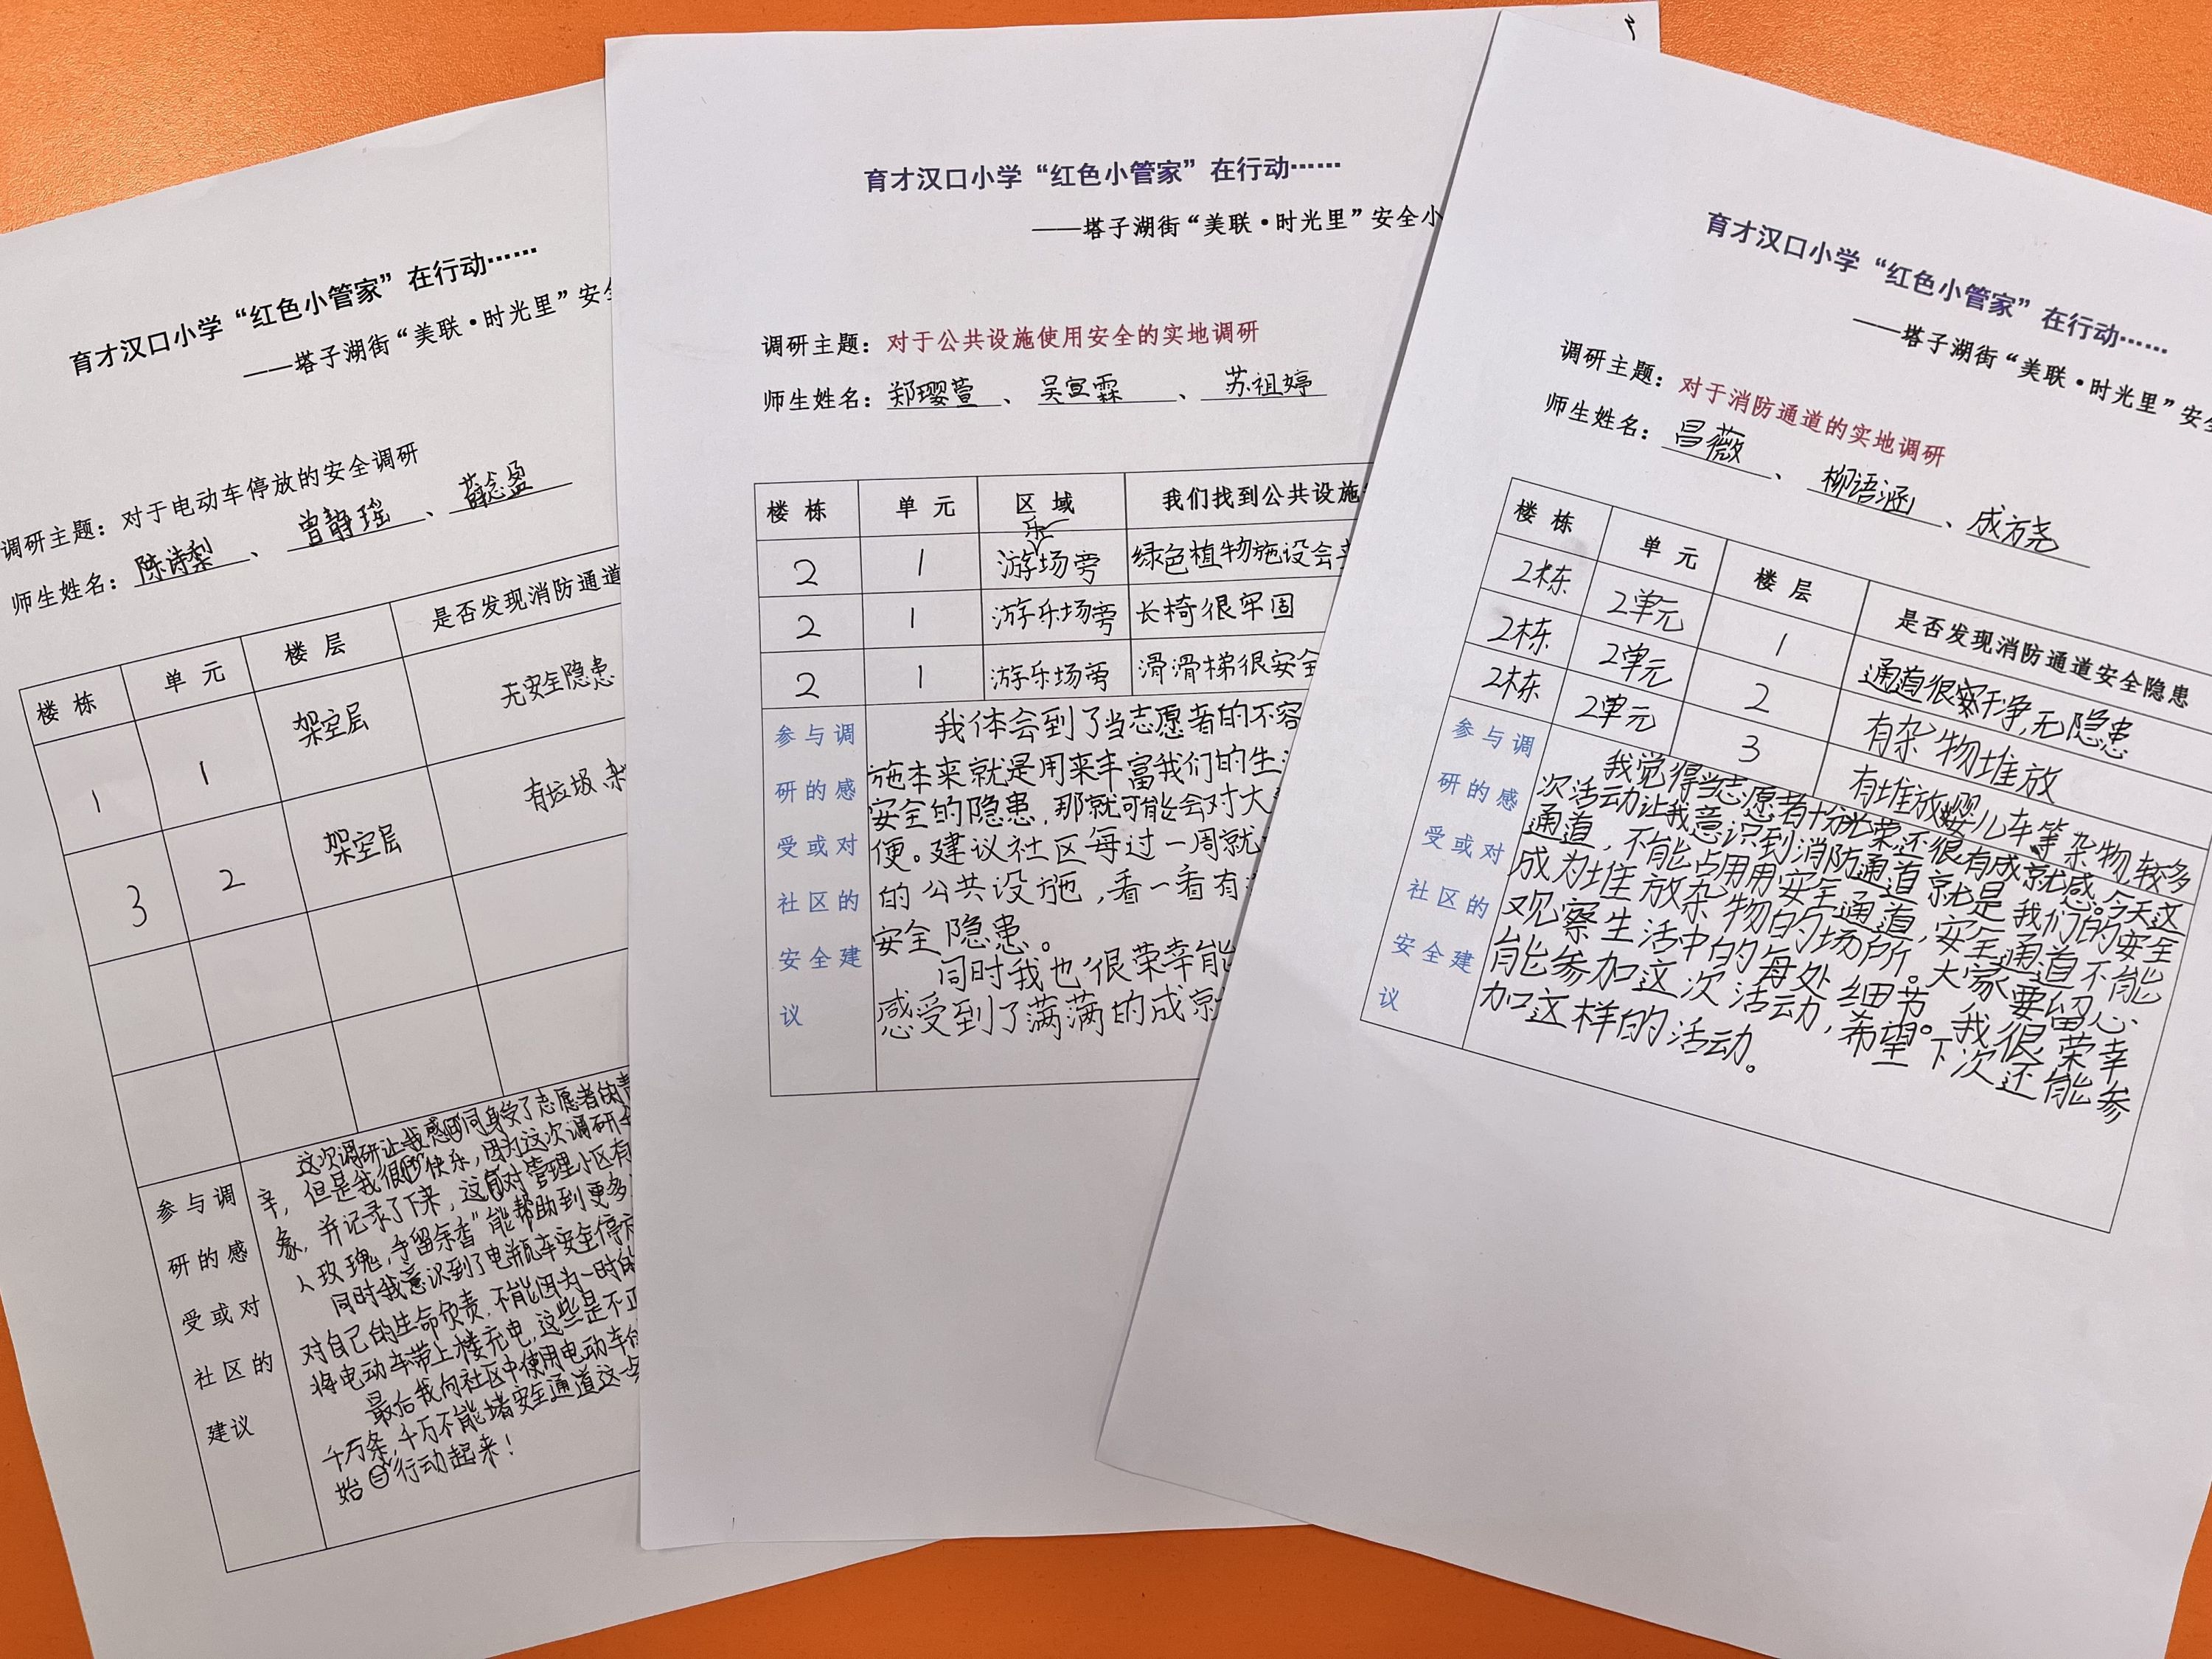 育才汉口小学“红色小管家”在行动……
——塔子湖街“美联·时光里”安全
调研主题：对于电动车停放的安全调研
师生姓名：陈诗梨、曾静瑶、薛念盈
楼栋 单元 楼层 是否发现消防通道
1 1 架空层 无安全隐患
3 2 架空层 有垃圾、杂
参与调研的感受或对社区的建议
这次调研让我感同身受了志愿者的
辛，但是我很快乐，因为这次调研
象，并记录了下来，这对管理小区有
人玫瑰，手留余香”能帮助到更多
同时我意识到了电瓶车安全停
对自己的生命负责，不能因为一时的
将电动车带上楼充电，这些是不正
最后我向社区中使用电动车
千万条，千万不能堵安全通道这一
始行动起来！
育才汉口小学“红色小管家”在行动……
——塔子湖街“美联·时光里”安全小
调研主题：对于公共设施使用安全的实地调研
师生姓名：郑璎萱、吴宣霖、苏祖婷
楼栋 单元 区域 我们找到公共设施
2 1 游乐场旁 绿色植物施设会
2 1 游乐场旁 长椅很牢固
2 1 游乐场旁 滑滑梯很安全
参与调研的感受或对社区的安全建议
我体会到了当志愿者的不容
施本来就是用来丰富我们的生
安全的隐患，那就可能会对大
便。建议社区每过一周就
的公共设施，看一看有
安全隐患。
同时我也很荣幸能
感受到了满满的成就
育才汉口小学“红色小管家”在行动……
——塔子湖街“美联·时光里”安全
调研主题：对于消防通道的实地调研
师生姓名：昌薇、柳语涵、成方尧
楼栋 单元 楼层 是否发现消防通道安全隐患
2栋 2单元 1 通道很干净，无隐患
2栋 2单元 2 有杂物堆放
2栋 2单元 3 有堆放婴儿车等杂物，较多
参与调研的感受或对社区的安全建议
我觉得当志愿者十分光荣还很有成就感。今天这
次活动让我意识到消防通道就是我们的安全
通道，不能占用用安全通道，安全通道不能
成为堆放杂物的场所。大家要留心
观察生活中的每处细节。我很荣幸
能参加这次活动，希望下次还能参
加这样的活动。